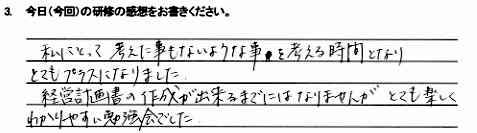 3. 今日(今回)の研修の感想をお書きください。
私にとって考えた事もないような事を考える時間となり
とてもプラスになりました。
経営計画書の作成が出来るまでにはなりませんが とても楽しく
わかりやすい勉強会でした。